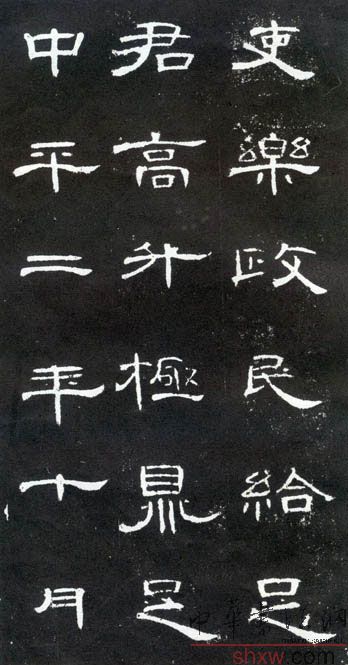 吏樂政民給足
君高升極鼎足
中平二年十月
shxw.com